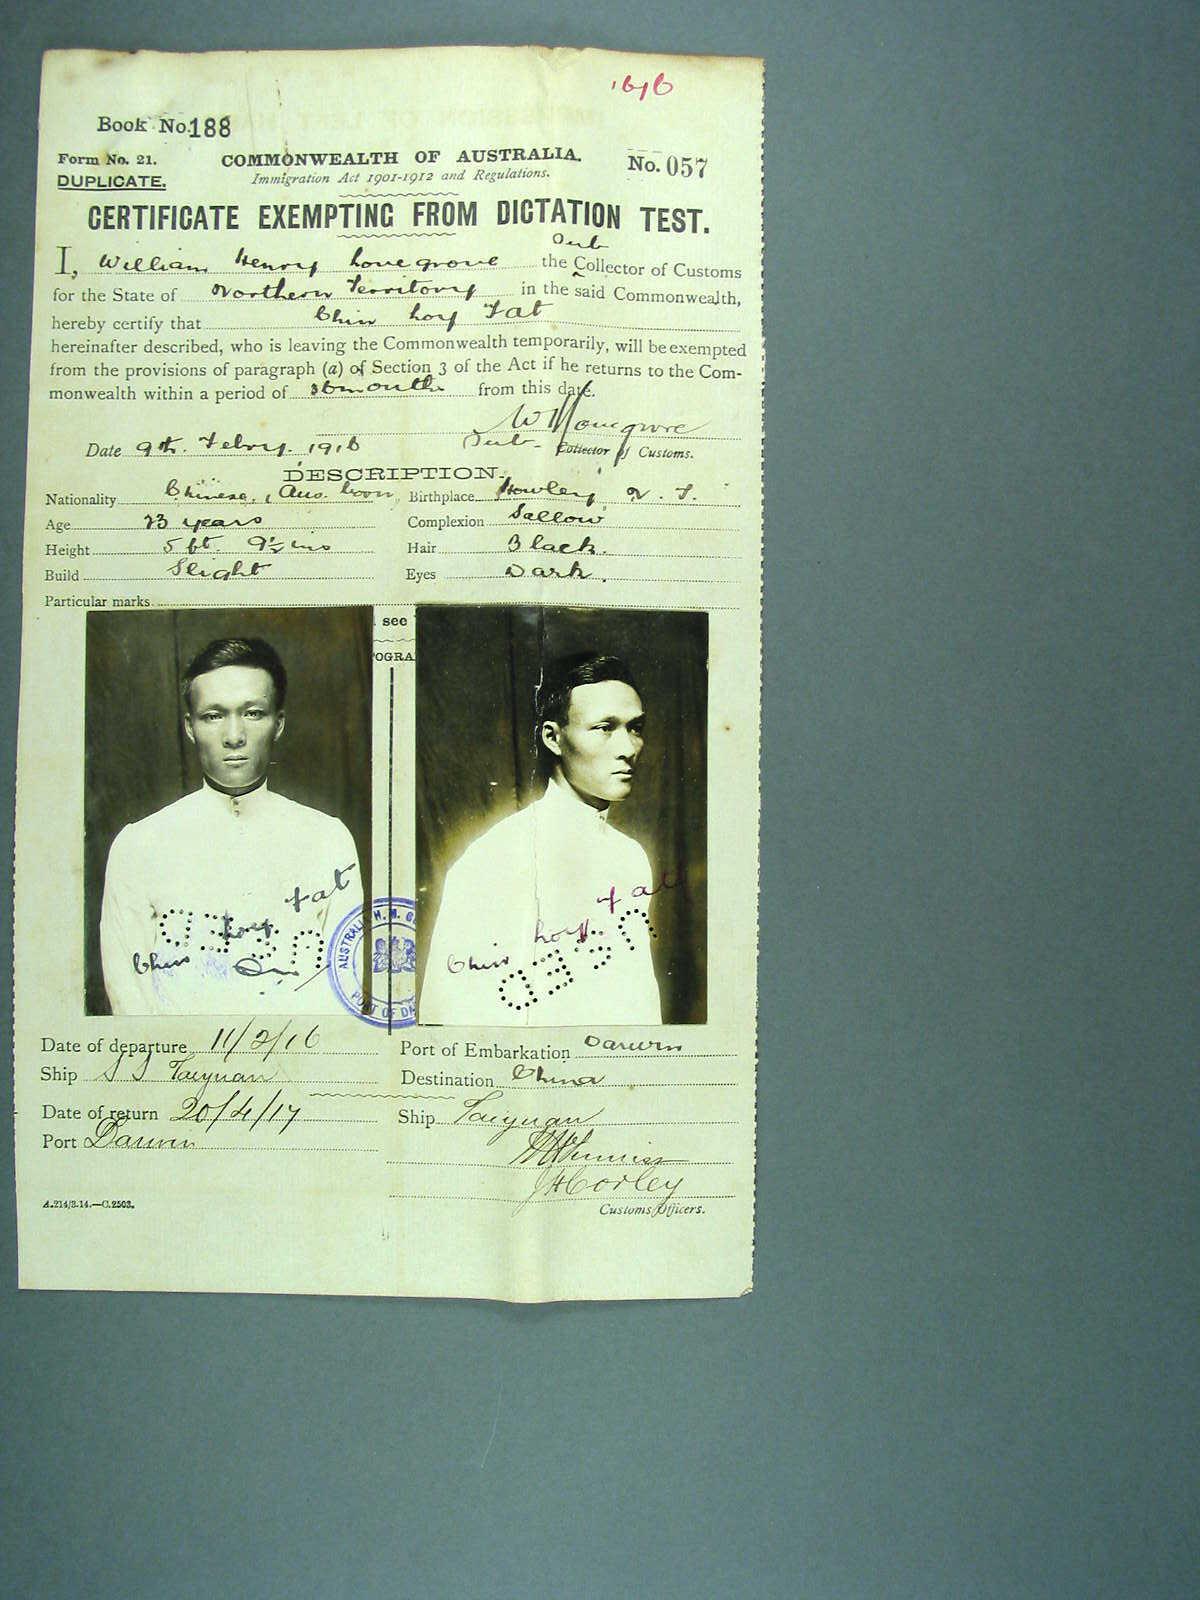 1916
Book No. 188
Form No. 21.
COMMONWEALTH OF AUSTRALIA.
No. 057
DUPLICATE.
Immigration Act 1901-1912 and Regulations.
CERTIFICATE EXEMPTING FROM DICTATION TEST.
Sub
I, William Henry Lovegrove the Collector of Customs
for the State of Northern Territory in the said Commonwealth,
hereby certify that Chin Loy Fat
hereinafter described, who is leaving the Commonwealth temporarily, will be exempted
from the provisions of paragraph (a) of Section 3 of the Act if he returns to the Com-
monwealth within a period of 36 months from this date.
W H Lovegrove
Date 9th. Febry. 1916 Sub- Collector of Customs.
DESCRIPTION.
Nationality Chinese, Aus. born Birthplace Howley N. T.
Age 23 years Complexion Sallow
Height 5 ft. 9½ ins Hair Black.
Build Slight Eyes Dark.
Particular marks
see
OGRA
Chin Loy Fat
USED
Chin Loy Fat
USED
AUSTRALIA H. M. C
PORT OF DA
Date of departure 11/2/16 Port of Embarkation Darwin
Ship S S Taiyuan Destination China
Date of return 20/4/17 Ship Taiyuan
Port Darwin
J H Corley
A.214/3.14.—C.2503. Customs Officers.